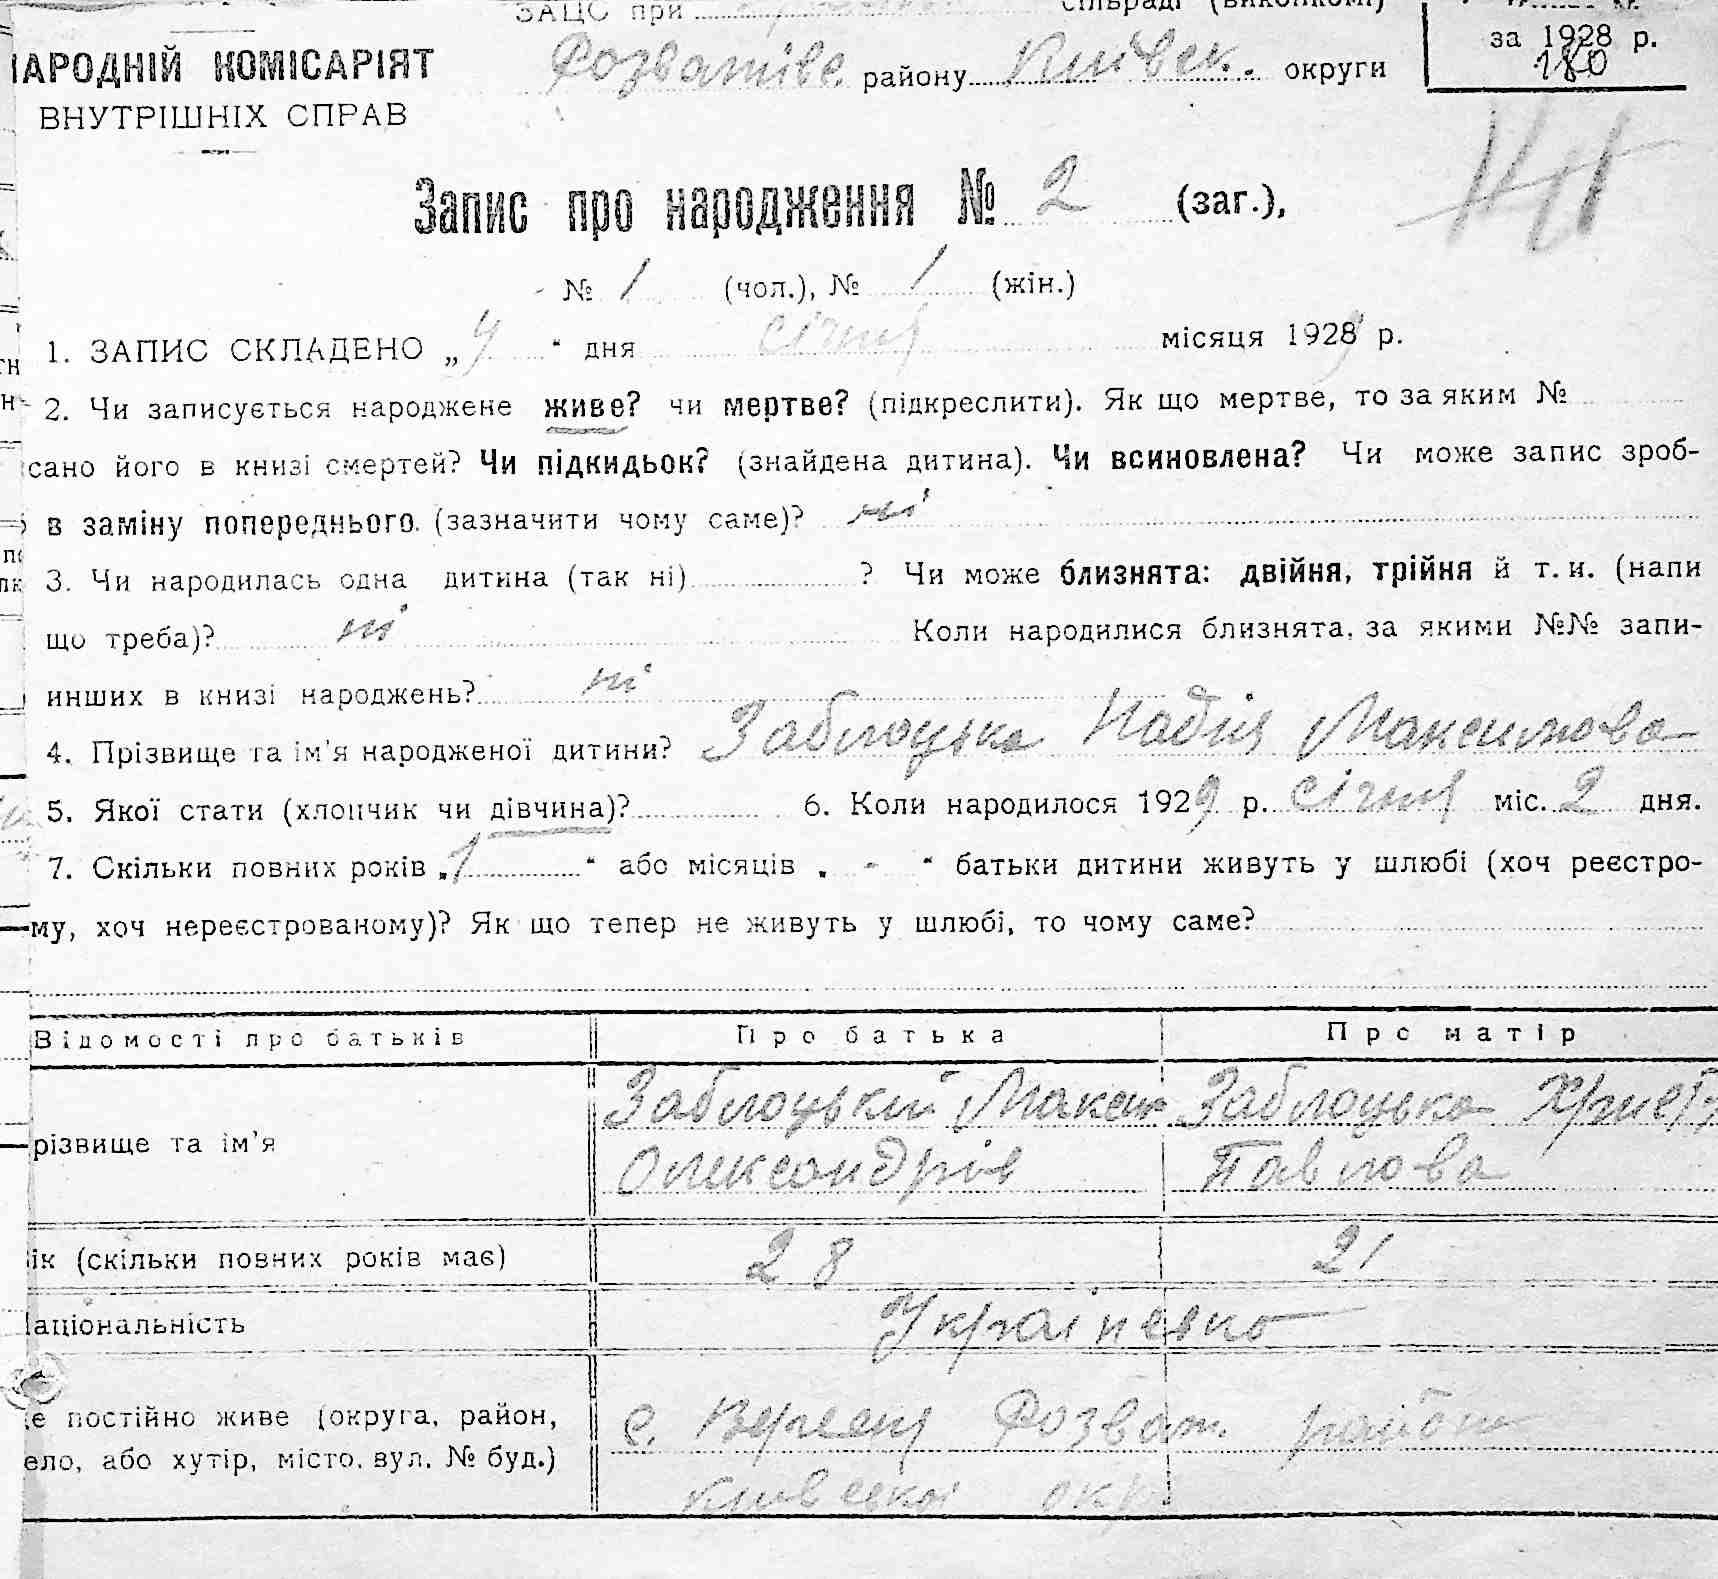 ЗАЦС при сільраді (виконкомі)
за 1928 р.
180
НАРОДНІЙ КОМІСАРІЯТ
ВНУТРІШНІХ СПРАВ
Розватівс. району Київськ. округи
Запис про народження № 2 (заг.),
№ 1 (чол.), № 1 (жін.)
1. ЗАПИС СКЛАДЕНО „ 4 “ дня січня місяця 1929 р.
2. Чи записується народжене живе? чи мертве? (підкреслити). Як що мертве, то за яким №
сано його в книзі смертей? Чи підкидьок? (знайдена дитина). Чи всиновлена? Чи може запис зроб-
в заміну попереднього (зазначити чому саме)? ні
3. Чи народилась одна дитина (так ні) ? Чи може близнята: двійня, трійня й т. и. (напи
що треба)? ні Коли народилися близнята, за якими №№ запи-
инших в книзі народжень? ні
4. Прізвище та ім’я народженої дитини? Заблоцька Надія Максимова
5. Якої стати (хлопчик чи дівчина)? 6. Коли народилося 1929 р. січня міс. 2 дня.
7. Скільки повних років „ 1 “ або місяців „ - “ батьки дитини живуть у шлюбі (хоч реєстро-
му, хоч нереєстрованому)? Як що тепер не живуть у шлюбі, то чому саме?
Відомості про батьків Про батька Про матір
різвище та ім’я Заблоцький Максим Заблоцька Христя
Олександрів Павлова
ік (скільки повних років має) 28 21
аціональність Українська
е постійно живе (округа, район, с. Вересня Розваж. район
ело, або хутір, місто, вул. № буд.) Київської окр.